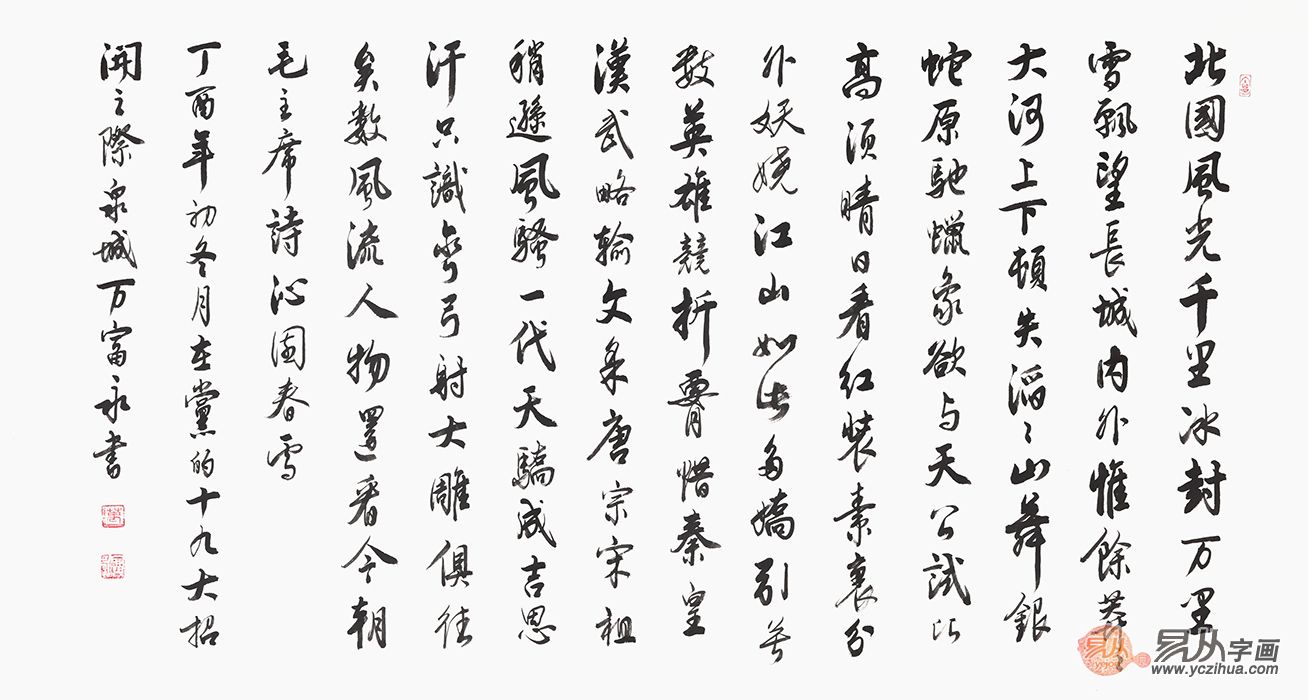 北國風光千里冰封万里
雪飄望長城内外惟餘莽々
大河上下頓失滔々山舞銀
蛇原馳蠟象欲与天公試比
高須晴日看紅裝素裹分
外妖嬈江山如此多嬌引無
數英雄競折腰惜秦皇
漢武略輸文采唐宗宋祖
稍遜風騷一代天驕成吉思
汗只識彎弓射大雕俱往
矣數風流人物還看今朝
毛主席詩沁園春雪
丁酉年初冬月在黨的十九大招
開之際泉城万富永書
易从字画
www.yczihua.com